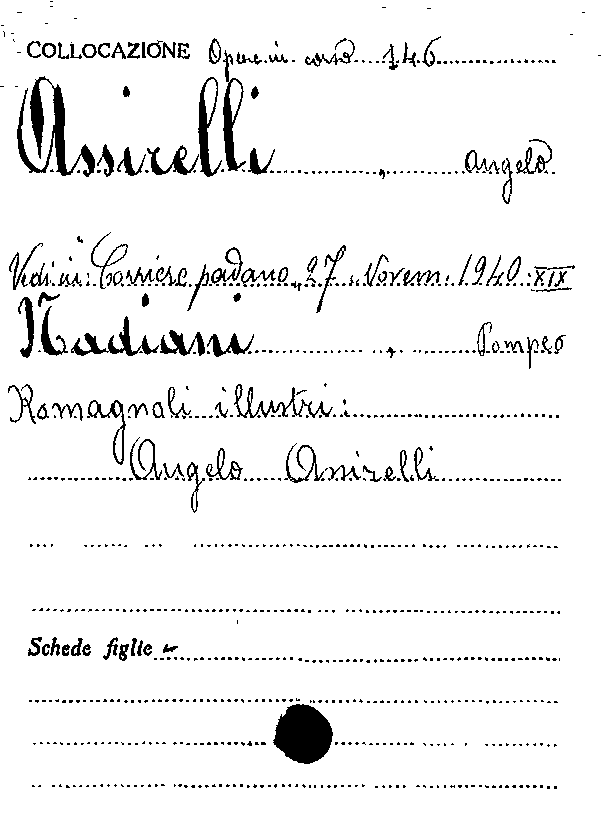 COLLOCAZIONE Opere in corso 146
Assirelli, Angelo
Vedi in: "Corriere padano" 27 Novem. 1940 : XIX
Nadiani, Pompeo
Romagnoli illustri:
Angelo Assirelli
Schede figlie